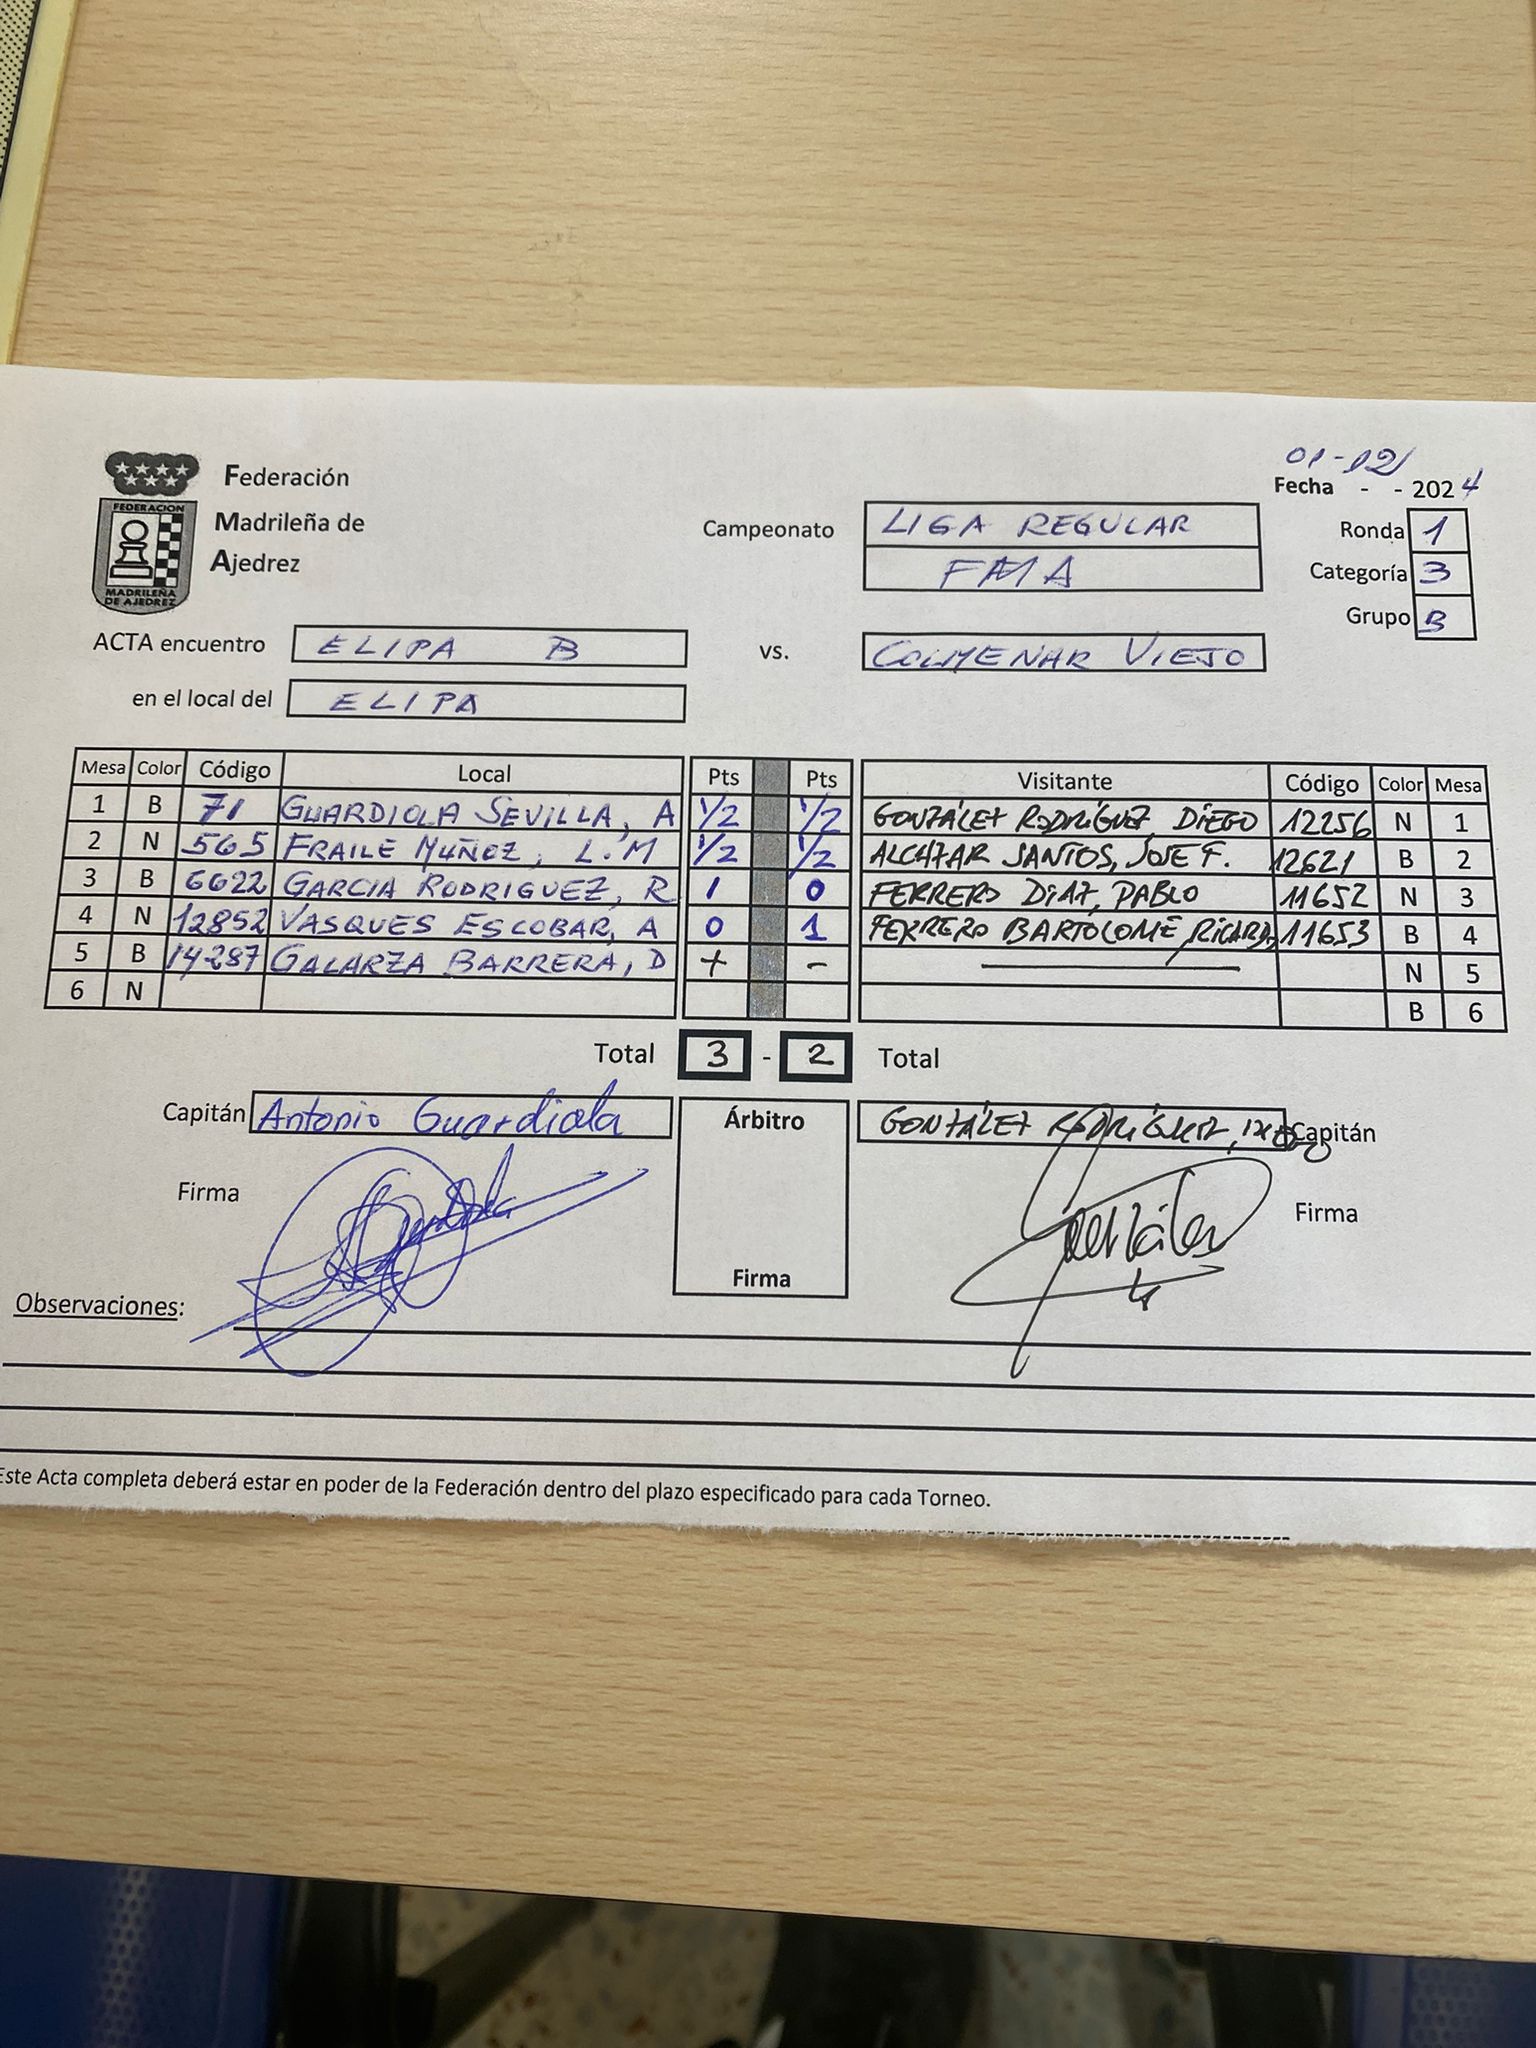 01-12
Federación
Madrileña de
Ajedrez
FEDERACION
MADRILEÑA
DE AJEDREZ
Campeonato LIGA REGULAR
FMA
Fecha - - 2024
Ronda 1
Categoría 3
Grupo B
ACTA encuentro ELIPA B vs. COLMENAR VIEJO
en el local del ELIPA
Mesa Color Código Local Pts Pts Visitante Código Color Mesa
1 B 71 GUARDIOLA SEVILLA, A 1/2 1/2 GONZÁLEZ RODRÍGUEZ, DIEGO 12256 N 1
2 N 565 FRAILE MUÑOZ, L.M 1/2 1/2 ALCAZAR SANTOS, JOSE F. 12621 B 2
3 B 6622 GARCIA RODRIGUEZ, R 1 0 FERRERO DIAZ, PABLO 11652 N 3
4 N 12852 VASQUES ESCOBAR, A 0 1 FERRERO BARTOLOMÉ 11653 B 4
5 B 14287 GALARZA BARRERA, D + - N 5
6 N B 6
Total 3 - 2 Total
Capitán Antonio Guardiola Árbitro GONZÁLEZ RODRÍGUEZ, Capitán
Firma Firma
Firma
Observaciones:
Este Acta completa deberá estar en poder de la Federación dentro del plazo especificado para cada Torneo.